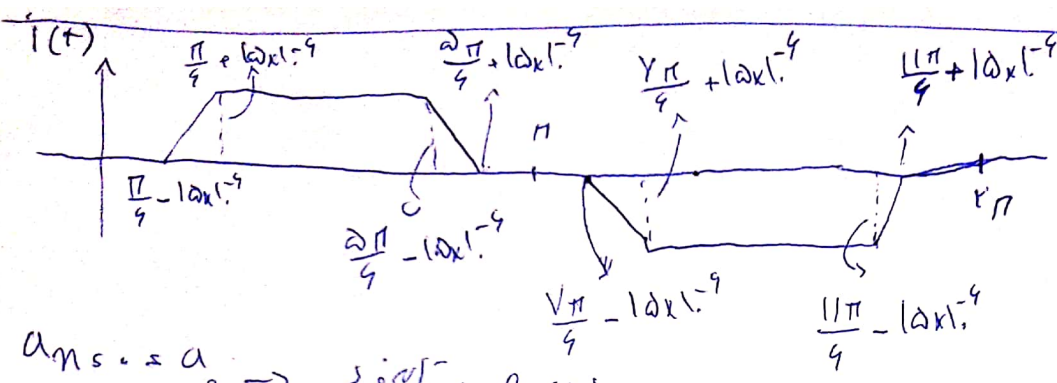 i(t)
π/۶ + ۱۵×۱۰⁻⁶
۵π/۶ + ۱۵×۱۰⁻⁶
۷π/۶ + ۱۵×۱۰⁻⁶
۱۱π/۶ + ۱۵×۱۰⁻⁶
π
۲π
π/۶ - ۱۵×۱۰⁻⁶
۵π/۶ - ۱۵×۱۰⁻⁶
۷π/۶ - ۱۵×۱۰⁻⁶
۱۱π/۶ - ۱۵×۱۰⁻⁶